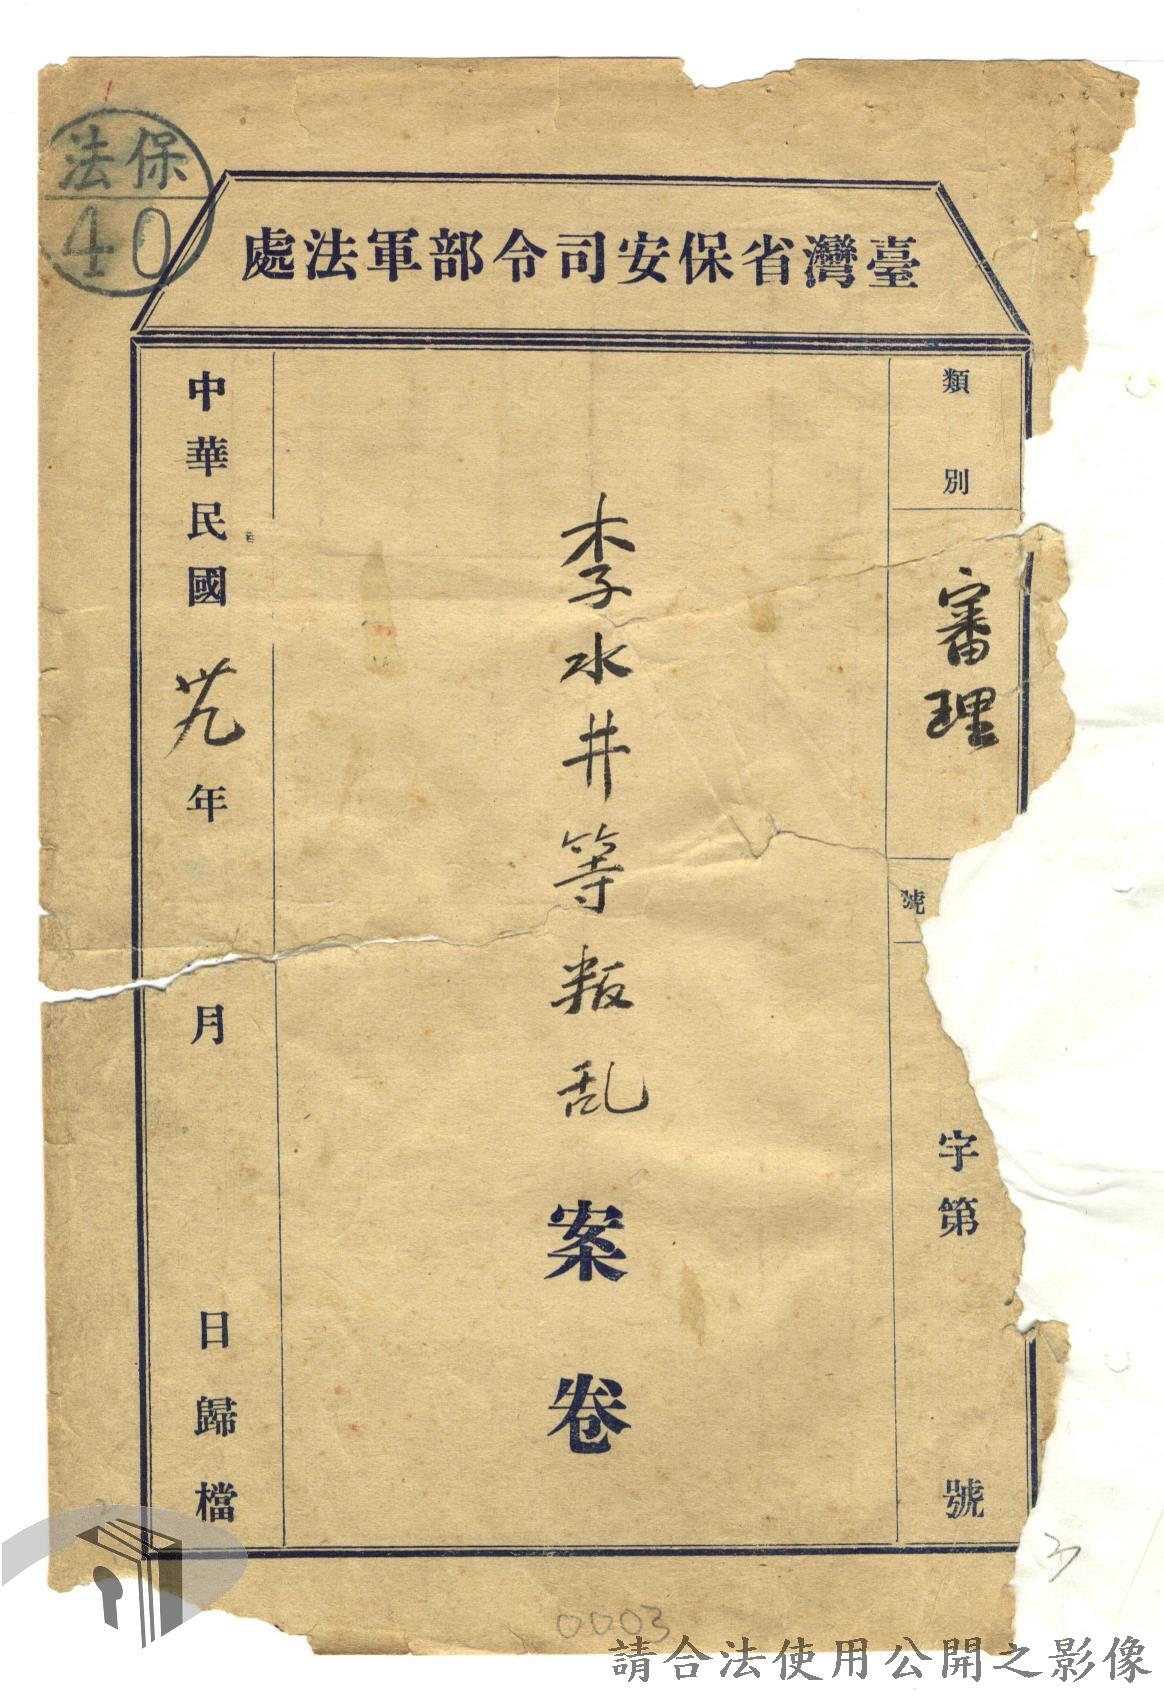 保法
40
臺灣省保安司令部軍法處
類別
審理
號
字第
號
李水井等叛乱案卷
中華民國卅九年 月 日歸檔
0003
請合法使用公開之影像